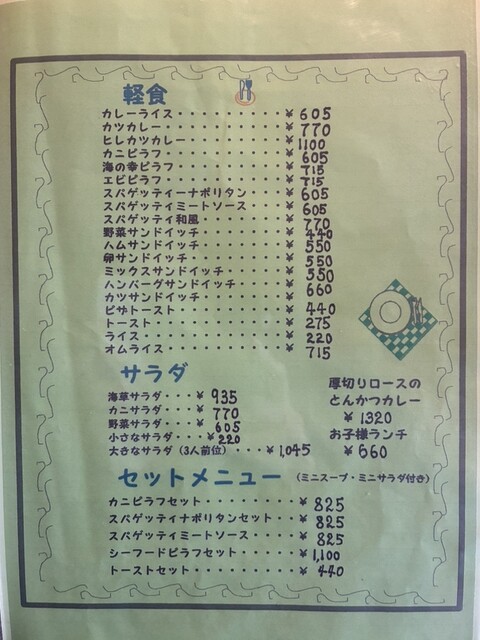 軽食
カレーライス・・・・・・・・・・¥605
カツカレー・・・・・・・・・・・¥770
ヒレカツカレー・・・・・・・・・¥1100
カニピラフ・・・・・・・・・・・¥605
海の幸ピラフ・・・・・・・・・・¥715
エビピラフ・・・・・・・・・・・¥715
スパゲッティーナポリタン・・・¥605
スパゲッティミートソース・・・¥605
スパゲッティ和風・・・・・・・・¥770
野菜サンドイッチ・・・・・・・・¥440
ハムサンドイッチ・・・・・・・・¥550
卵サンドイッチ・・・・・・・・・¥550
ミックスサンドイッチ・・・・・・¥550
ハンバーグサンドイッチ・・・・・¥660
カツサンドイッチ・・・・・・・・¥
ピザトースト・・・・・・・・・・¥440
トースト・・・・・・・・・・・・¥275
ライス・・・・・・・・・・・・・¥220
オムライス・・・・・・・・・・・¥715
サラダ
海草サラダ・・・¥935
カニサラダ・・・¥770
野菜サラダ・・・¥605
小さなサラダ・・・¥220
大きなサラダ(3人前位)・・・¥1,045
厚切りロースの
とんかつカレー
¥1320
お子様ランチ
¥660
セットメニュー (ミニスープ・ミニサラダ付き)
カニピラフセット・・・・・・・・¥825
スパゲッティナポリタンセット・・¥825
スパゲッティミートソース・・・・¥825
シーフードピラフセット・・・・・¥1,100
トーストセット・・・・・・・・・¥440